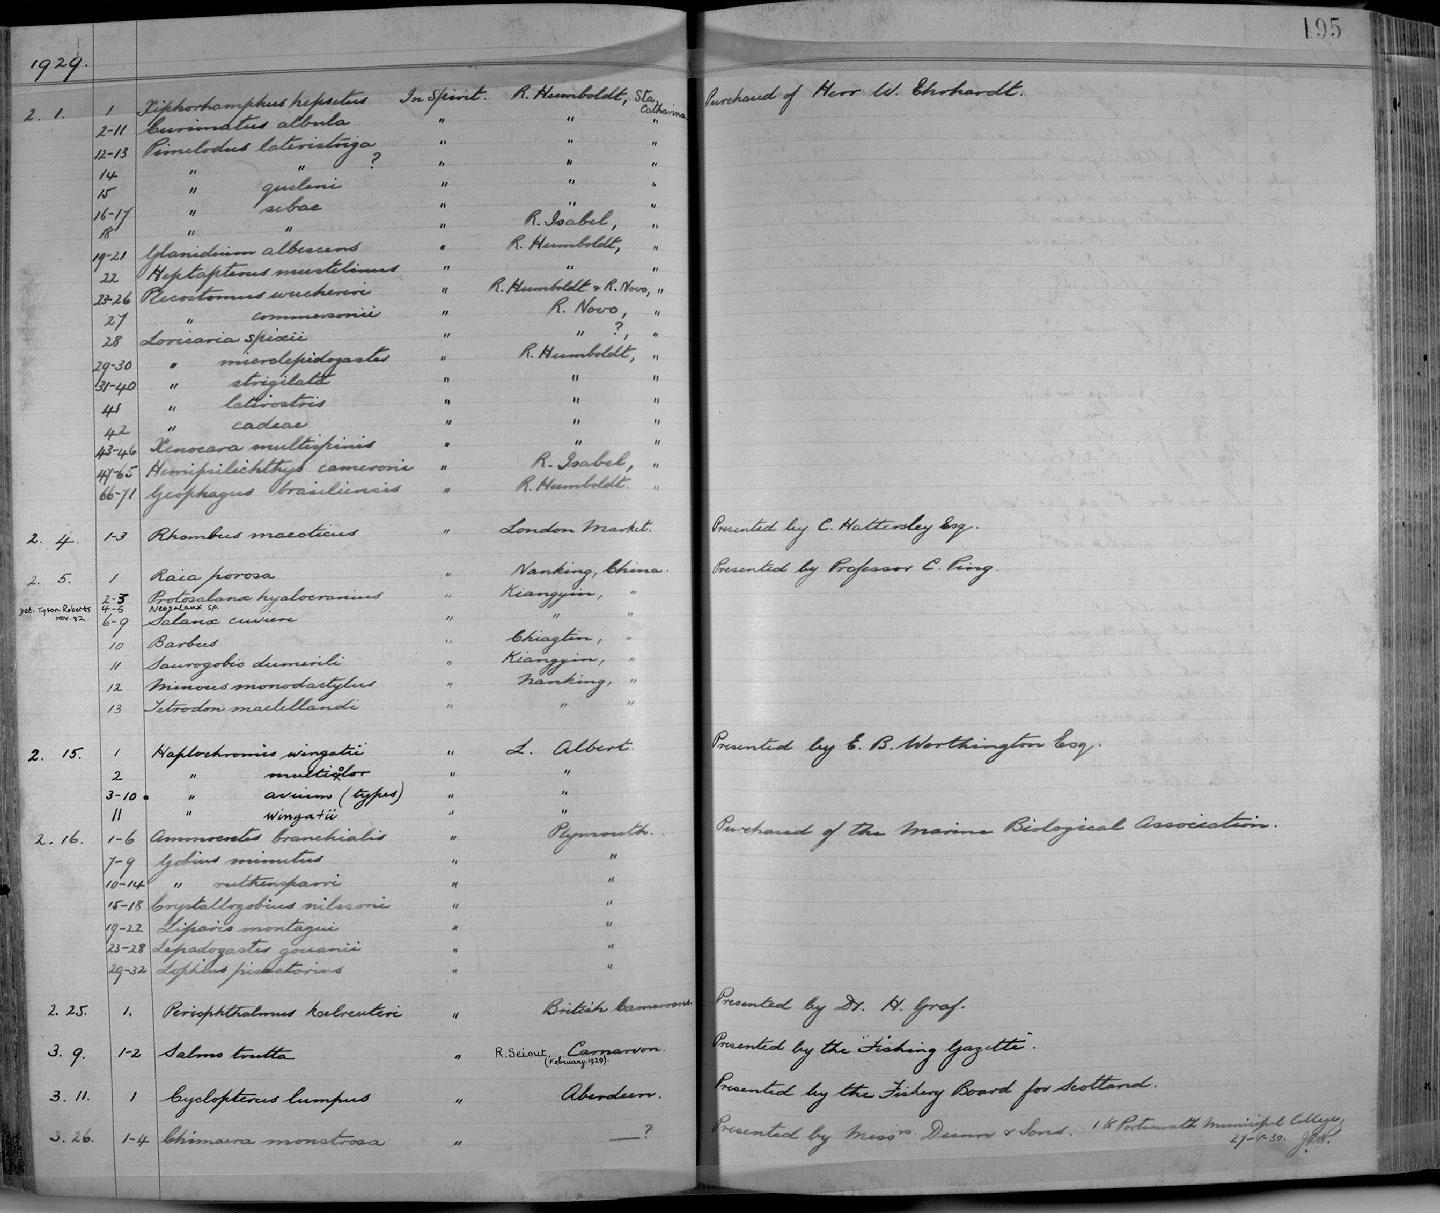 195
1929.
2. 1. 1 Xiphorhamphus hepsetus In Spirit. R. Humboldt, Sta. Catharina Purchased of Herr W. Ehrhardt.
2-11 Curimatus albula " " "
12-13 Pimelodus lateristriga " " "
14 " " ? " " "
15 " queleni " " "
16-17 " sebae " " "
18 " " " R. Isabel, "
19-21 Glanidium albescens " R. Humboldt, "
22 Heptapterus mustelinus " " "
23-26 Plecostomus wuchereri " R. Humboldt & R. Novo, "
27 " commersonii " R. Novo, "
28 Loricaria spixii " " ?, "
29-30 " microlepidogaster " R. Humboldt, "
31-40 " strigilata " " "
41 " latirostris " " "
42 " cadeae " " "
43-46 Xenocara multispinis " " "
47-65 Hemipsilichthys cameroni " R. Isabel, "
66-71 Geophagus brasiliensis " R. Humboldt. "
2. 4. 1-3 Rhombus maeoticus " London Market. Presented by C. Hattersley Esq.
2. 5. 1 Raia porosa " Nanking, China. Presented by Professor C. Ping.
2-3 Protosalanx hyalocranius " Kiangyin, "
det. Tyson Roberts Nov. 82 4-5 Neosalanx sp.
6-9 Salanx cuvieri " " "
10 Barbus " Chiagtin, "
11 Saurogobio dumerili " Kiangyin, "
12 Minous monodactylus " Nanking, "
13 Tetrodon maclellandi " " "
2. 15. 1 Haplochromis wingatii " L. Albert. Presented by E. B. Worthington Esq.
2 " multicolor " "
3-10 " avium (types) " "
11 " wingatii " "
2. 16. 1-6 Ammocoetes branchialis " Plymouth. Purchased of the Marine Biological Association.
7-9 Gobius minutus " "
10-14 " ruthensparri " "
15-18 Crystallogobius nilssoni " "
19-22 Liparis montagui " "
23-28 Lepadogaster gouanii " "
29-32 Lophius piscatorius " "
2. 25. 1. Periophthalmus koelreuteri " British Cameroons. Presented by Dr. H. Graf.
3. 9. 1-2 Salmo trutta " R. Seiout, Carnarvon. (February 1929). Presented by the "Fishing Gazette".
3. 11. 1 Cyclopterus lumpus " Aberdeen. Presented by the Fishery Board for Scotland.
3. 26. 1-4 Chimaera monstrosa " —? Presented by Messrs. Dunn & Sons. 1 to Portsmouth Municipal College,